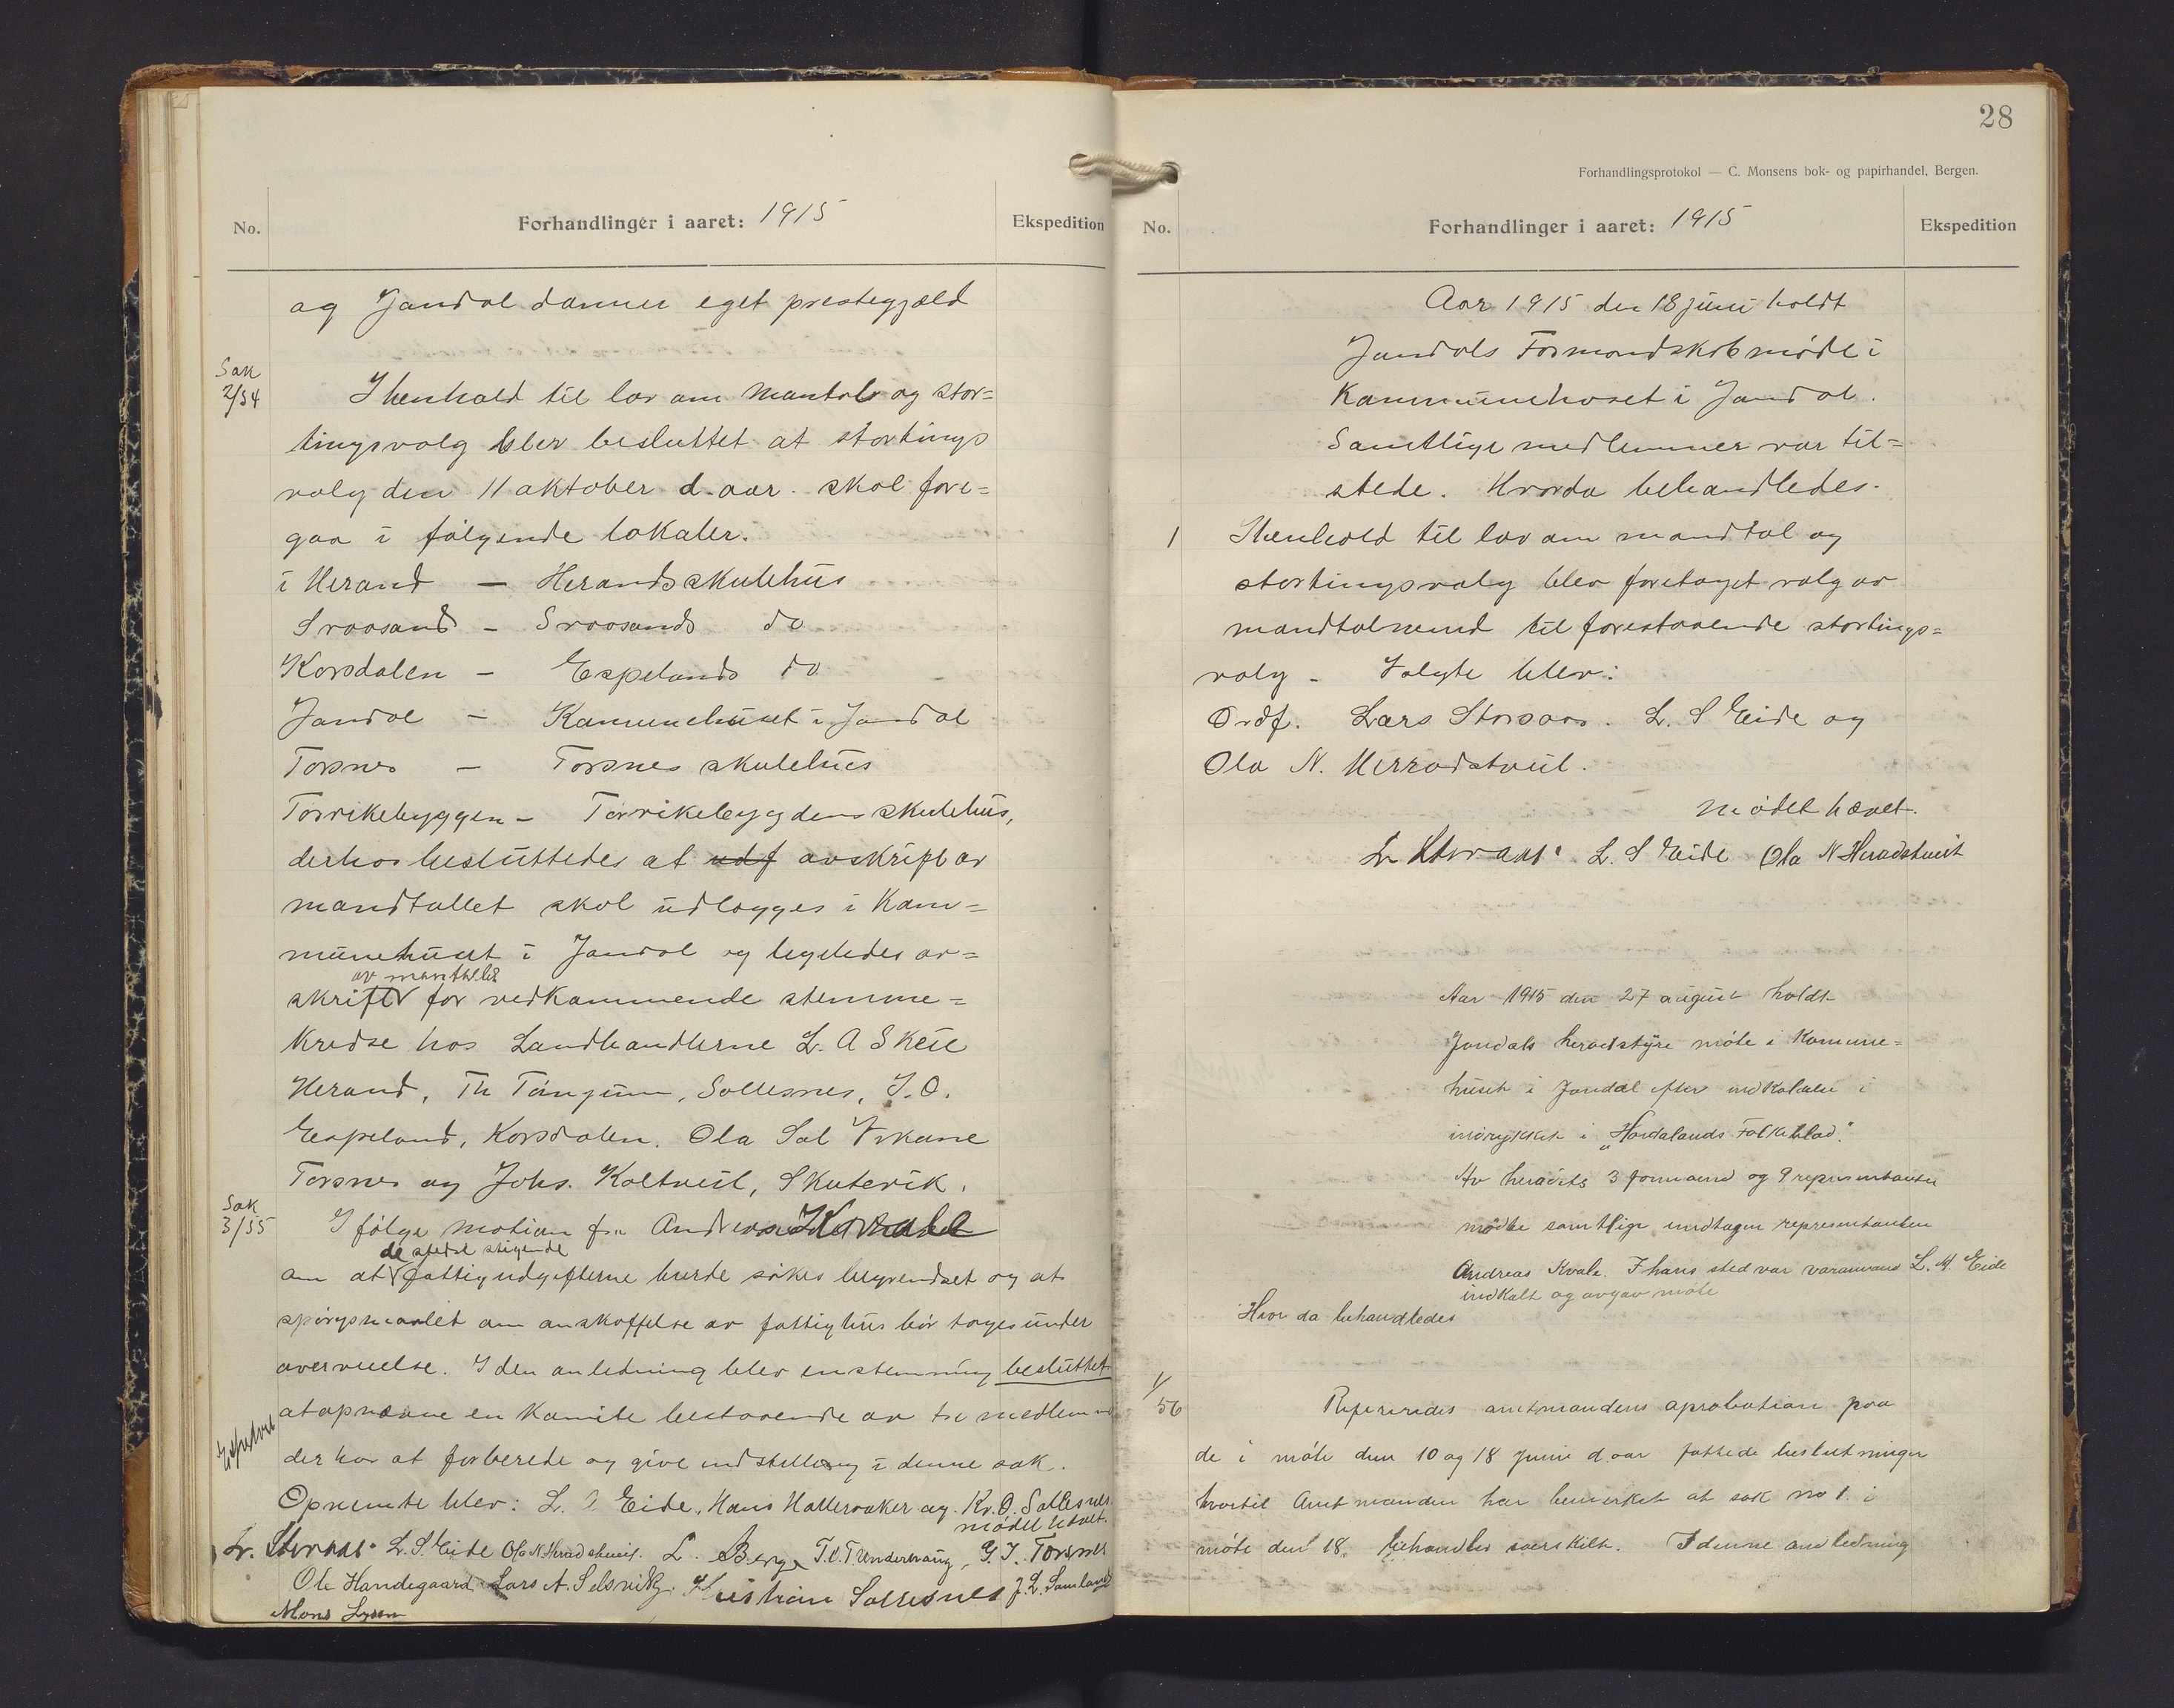 No.
Forhandlinger i aaret: 1915
Ekspedition
og Jondal danner eget prestegjæld
Sak
2/54
I henhold til lov om mantals og stor=
tingsvalg blev besluttet at stortings
valg den 11 oktober d. aar. skal fore=
gaa i følgende lokaler.
i Herand — Herands skulehus
Svaasand - Svaasands do
Korsdalen - Espelands do
Jondal - Kommunehuset i Jondal
Torsnes - Torsnes skulehus
Torvikebyggen - Torvikebygdens skulehus,
derhos besluttedes at udf avskrift av
mandtallet skal udlægges i Kom=
munehuset i Jondal og ligeledes av=
av mantallet
skrift for vedkommende stemme=
kredse hos Landhandlerne L. A Skeie
Herand, Th Tangum, Sollesnes, J. O.
Espeland, Korsdalen. Ola Sal Vikane
Torsnes og Johs. Koltveit, Skutevik.
Sak
3/55
I følge motion fra Andreas Kvale
de stedse stigende
om at fattigudgifterne burde søkes begrendset og at
spørgsmaalet om anskaffelse av fattighus bør tages under
overveielse. I den anledning blev enstemmig besluttet
at opnævne en Komite bestaaende av tre medlemmer
der har at forberede og give indstilling i denne sak.
Opnemte blev: L. S Eide, Hans Halleraaker og Kr. O. Sollesnes.
mødet hævet.
Lr. Storaas. L. S. Eide Ola N Heradstveit. L. Berge T. O. Trondervaag, G. J. Torsnes
Ole Handegaard Lars A. Selsvik Kristian Sollesnes J. L. Samland
Mons Lysen
28
Forhandlingsprotokol — C. Monsens bok- og papirhandel, Bergen.
No.
Forhandlinger i aaret: 1915
Ekspedition
Aar 1915 den 18 juni holdt
Jondals Formandskabmøde i
Kommunehuset i Jondal.
Samtlige medlemmer var til=
stede. Hvorda behandledes.
1
I henhold til lov om mandtal og
stortingsvalg blev foretaget valg av
mandtalnemd til forestaaende stortings=
valg - Valgte blev:
Ordf. Lars Storaas. L. S Eide og
Ola N. Herradstveit.
mødet hævet.
Lr Storaas. L. S Eide Ola N Heradstveit
Aar 1915 den 27 august holdt
Jondals heradstyre møte i Kommune=
huset i Jondal efter indkaldelse i
indrykket i "Hardalands Folkeblad".
Av heradets 3 formænd og 9 representanter
mødte samtlige undtagen representanten
Andreas Kvale. I hans sted var varamand L. M. Eide
indkalt og avgav møte
Hvor da behandledes
1/56
Refereredes amtmandens aprobation paa
de i møte den 10 og 18 Juni d. aar fattede beslutninger
hvortil Amtmanden har bemerket at sak no 1. i
møte den 18. behandles særskilt. I denne anledning